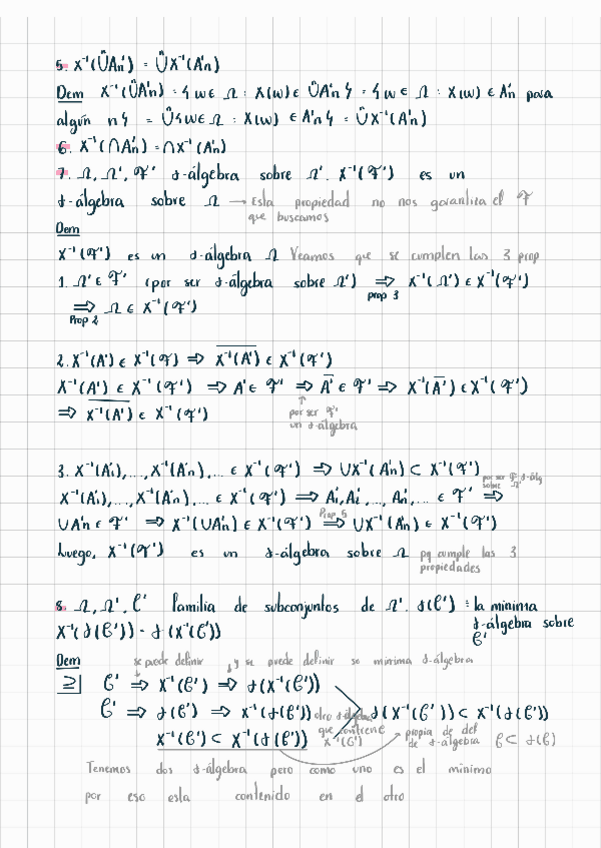 5. X⁻¹(ÛA'n) = ÛX⁻¹(A'n)
Dem X⁻¹(ÛA'n) = {w ∈ Ω : X(w) ∈ ÛA'n} = {w ∈ Ω : X(w) ∈ A'n para
algún n} = Û{w ∈ Ω : X(w) ∈ A'n} = ÛX⁻¹(A'n)
6. X⁻¹(∩A'n) = ∩X⁻¹(A'n)
7. Ω, Ω', F' σ-álgebra sobre Ω'. X⁻¹(F') es un
σ-álgebra sobre Ω → Esta propiedad no nos garantiza el F
que buscamos
Dem
X⁻¹(F') es un σ-álgebra Ω Veamos que se cumplen las 3 prop
1. Ω' ∈ F' (por ser σ-álgebra sobre Ω') ⇒ X⁻¹(Ω') ∈ X⁻¹(F')
prop 3
⇒ Ω ∈ X⁻¹(F')
Prop 2
2. X⁻¹(A') ∈ X⁻¹(F) ⇒ \overline{X⁻¹(A')} ∈ X⁻¹(F')
X⁻¹(A') ∈ X⁻¹(F') ⇒ A' ∈ F' ⇒ \overline{A'} ∈ F' ⇒ X⁻¹(\overline{A'}) ∈ X⁻¹(F')
⇒ \overline{X⁻¹(A')} ∈ X⁻¹(F')
↑ por ser F'
un σ-álgebra
3. X⁻¹(A'₁),..., X⁻¹(A'n),... ∈ X⁻¹(F') ⇒ ∪X⁻¹(A'n) ⊂ X⁻¹(F')
X⁻¹(A'₁),..., X⁻¹(A'n),... ∈ X⁻¹(F') ⇒ A'₁, A'₂, ..., A'n, ... ∈ F' ⇒
por ser F' σ-álg
sobre Ω'
∪A'n ∈ F' ⇒ X⁻¹(∪A'n) ∈ X⁻¹(F') ⇒ ∪X⁻¹(A'n) ∈ X⁻¹(F')
Prop 5
Luego, X⁻¹(F') es un σ-álgebra sobre Ω pq cumple las 3
propiedades
8. Ω, Ω', C' familia de subconjuntos de Ω'. σ(C') = la mínima
σ-álgebra sobre
C'
X⁻¹(σ(C')) = σ(X⁻¹(C'))
Dem
se puede definir ↓ y se puede definir se mínima σ-álgebra
⊇| C' ⇒ X⁻¹(C') ⇒ σ(X⁻¹(C'))
C' ⇒ σ(C') ⇒ X⁻¹(σ(C')) otro σ-álgebra
que contiene
X⁻¹(C')
σ(X⁻¹(C')) ⊂ X⁻¹(σ(C'))
X⁻¹(C') ⊂ X⁻¹(σ(C'))
propia de def
de σ-álgebra C ⊂ σ(C)
Tenemos dos σ-álgebra pero como uno es el mínimo
por eso esta contenido en el otro